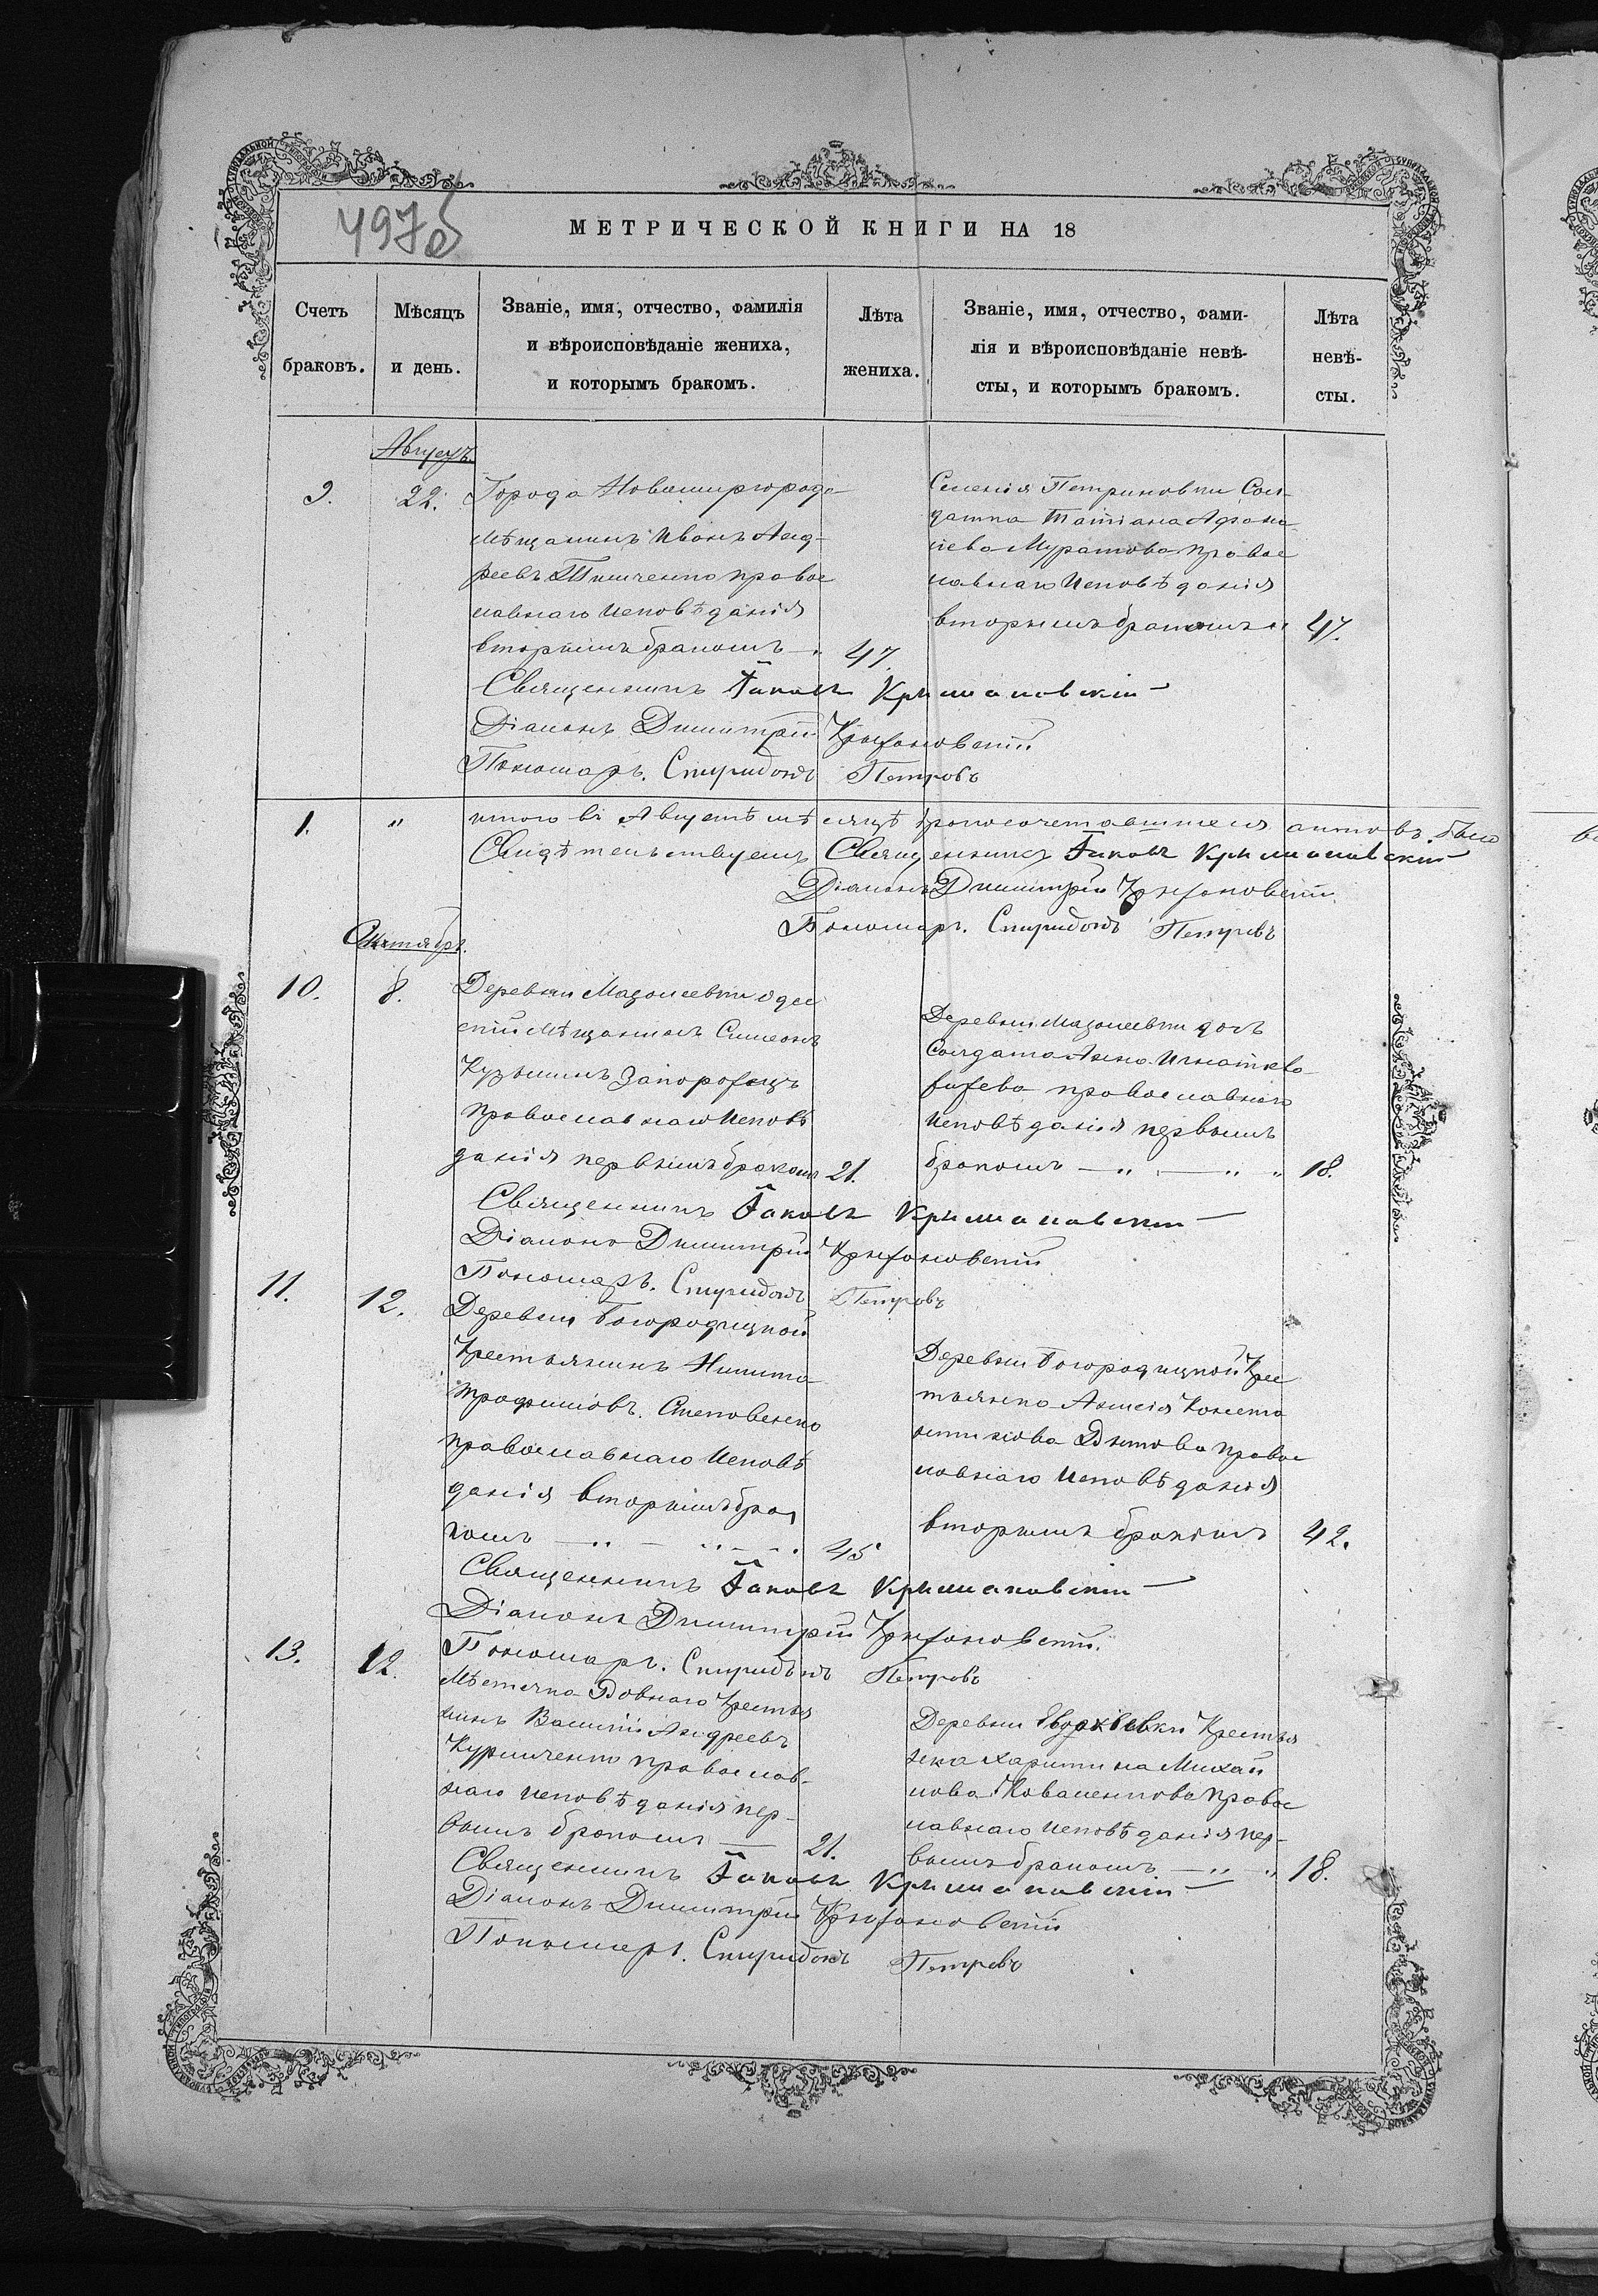 497об
МЕТРИЧЕСКОЙ КНИГИ НА 18
Счетъ браковъ.
Мѣсяцъ и день.
Званіе, имя, отчество, фамилія
и вѣроисповѣданіе жениха,
и которымъ бракомъ.
Лѣта жениха.
Званіе, имя, отчество, фами-
лія и вѣроисповѣданіе невѣ-
сты, и которымъ бракомъ.
Лѣта
невѣ-
сты.
Августъ.
9.
22.
Города Новомиргорода
мѣщанинъ Иванъ Анд-
реевъ Тимченко правос
лавнаго исповѣданія
вторымъ бракомъ
47.
Селенія Петриковки Сол-
датка Татіана Афана
сіева Муратова правос
лавнаго исповѣданія
вторымъ бракомъ
47.
Священникъ Іаковъ Крыжановскій
Діаконъ Димитрій Крыжановскій
Пономарь. Спиридонъ Петровъ
1.
"
итого въ Августѣ мѣсяцѣ бракосочетавшихся актовъ. было
Свидѣтельствуемъ Священникъ Іаковъ Крыжановскій
Діаконъ Димитрій Крыжановскій
Пономарь. Спиридонъ Петровъ
Октябрь.
10.
8.
Деревни Мазолеевки одес
скій мѣщанинъ Симеонъ
Кузьминъ Запорожецъ
православнаго исповѣ
данія первымъ бракомъ
21.
Деревни Мазолеевки дочь
Солдата Анна Игнатьева
православнаго
исповѣданія первымъ
бракомъ
18.
Священникъ Іаковъ Крыжановскій
Діаконъ Димитрій Крыжановскій
Пономарь. Спиридонъ Петровъ
11.
12.
Деревни Богородицкой
Крестьянинъ Никита
Трофимовъ. Степовенко
православнаго исповѣ
данія вторымъ бра
комъ
45
Деревни Богородицкой Крес
тьянка Анисія Конста
нтинова правос
лавнаго исповѣданія
вторымъ бракомъ
42.
Священникъ Іаковъ Крыжановскій
Діаконъ Димитрій Крыжановскій.
Пономарь. Спиридонъ Петровъ
13.
12.
Мѣстечка Ровнаго Крестья
нинъ Василій Андреевъ
православ-
наго исповѣданія пер-
вымъ бракомъ
21.
Деревни Крестья
нка Харитина Михай
лова Коваленкова правос
лавнаго исповѣданія пер-
вымъ бракомъ
18.
Священникъ Іаковъ Крыжановскій
Діаконъ Димитрій Крыжановскій
Пономарь. Спиридонъ Петровъ